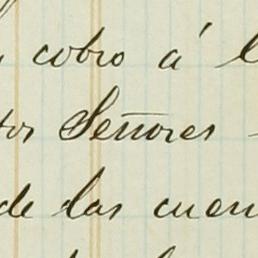 cobro á
Señores
de las cuen